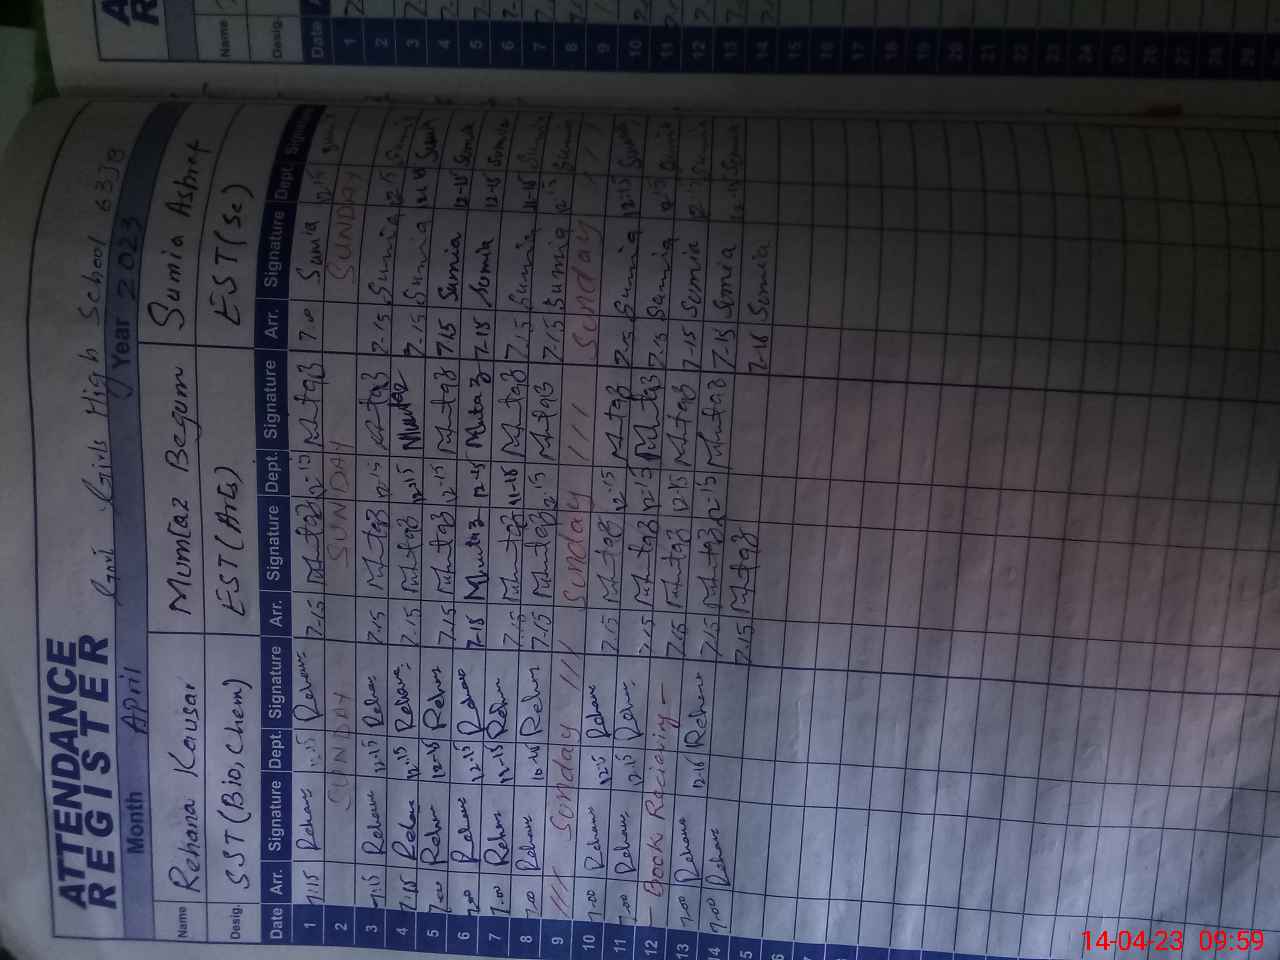 ATTENDANCE
REGISTER
Govt Girls High School 633JB
Month April Year 2023
Name Rehana Kausar Mumtaz Begum Sumia Ashraf
Desig. SST (Bio, Chem) EST (Arts) EST (Sc)
Date Arr. Signature Dept. Signature Arr. Signature Dept. Signature Arr. Signature Dept. Signature
1 7:15 Rehana Rehana 7-15 Mumtaz 12-15 Mumtaz 7.0 Sumia 12-15
2 SUNDAY SUNDAY SUNDAY
3 7:15 Rehana 12-15 Rehana 7.15 Mumtaz 12-15 Mumtaz 7.15 Sumia 12-15 Sumia
4 7.15 Rehana 12.15 Rehana 7.15 Mumtaz 12-15 Mumtaz 7.15 Sumia 12-15 Sumia
5 7.00 Rehana 12-15 Rehana 7.15 Mumtaz 12-15 Mumtaz 7.15 Sumia 12-15 Sumia
6 7.00 Rehana 12-15 Rehana 7-15 Mumtaz 12-15 Mumtaz 7-15 Sumia 12-15 Sumia
7 7.00 Rehana 11-15 Rehana 7.15 Mumtaz 11-15 Mumtaz 7.15 Sumia 11-15 Sumia
8 7.00 Rehana Rehana 7.15 Mumtaz 12-15 Mumtaz 7.15 Sumia 12-15 Sumia
9 Sunday Sunday Sunday
10 7.00 Rehana 12-15 Rehana 7.15 Mumtaz 12-15 Mumtaz 7.15 Sumia 12-15 Sumia
11 7.00 Rehana 12-15 Rehana 7.15 Mumtaz 12-15 Mumtaz 7.15 Sumia 12-15 Sumia
12 — Books Recieving — 7.15 Mumtaz 12-15 Mumtaz 7-15 Sumia 12-15 Sumia
13 7.00 Rehana 12-15 Rehana 7.15 Mumtaz 12-15 Mumtaz 7-15 Sumia 12-15 Sumia
14 7.00 Rehana 7.15 Mumtaz 7-15 Sumia
15
Name
Desig.
Date 1 2 3 4 5 6 7 8 9 10 11 12 13 14 15 16 17 18 19 20 21 22 23 24 25 26 27 28 29
14-04-23 09:59